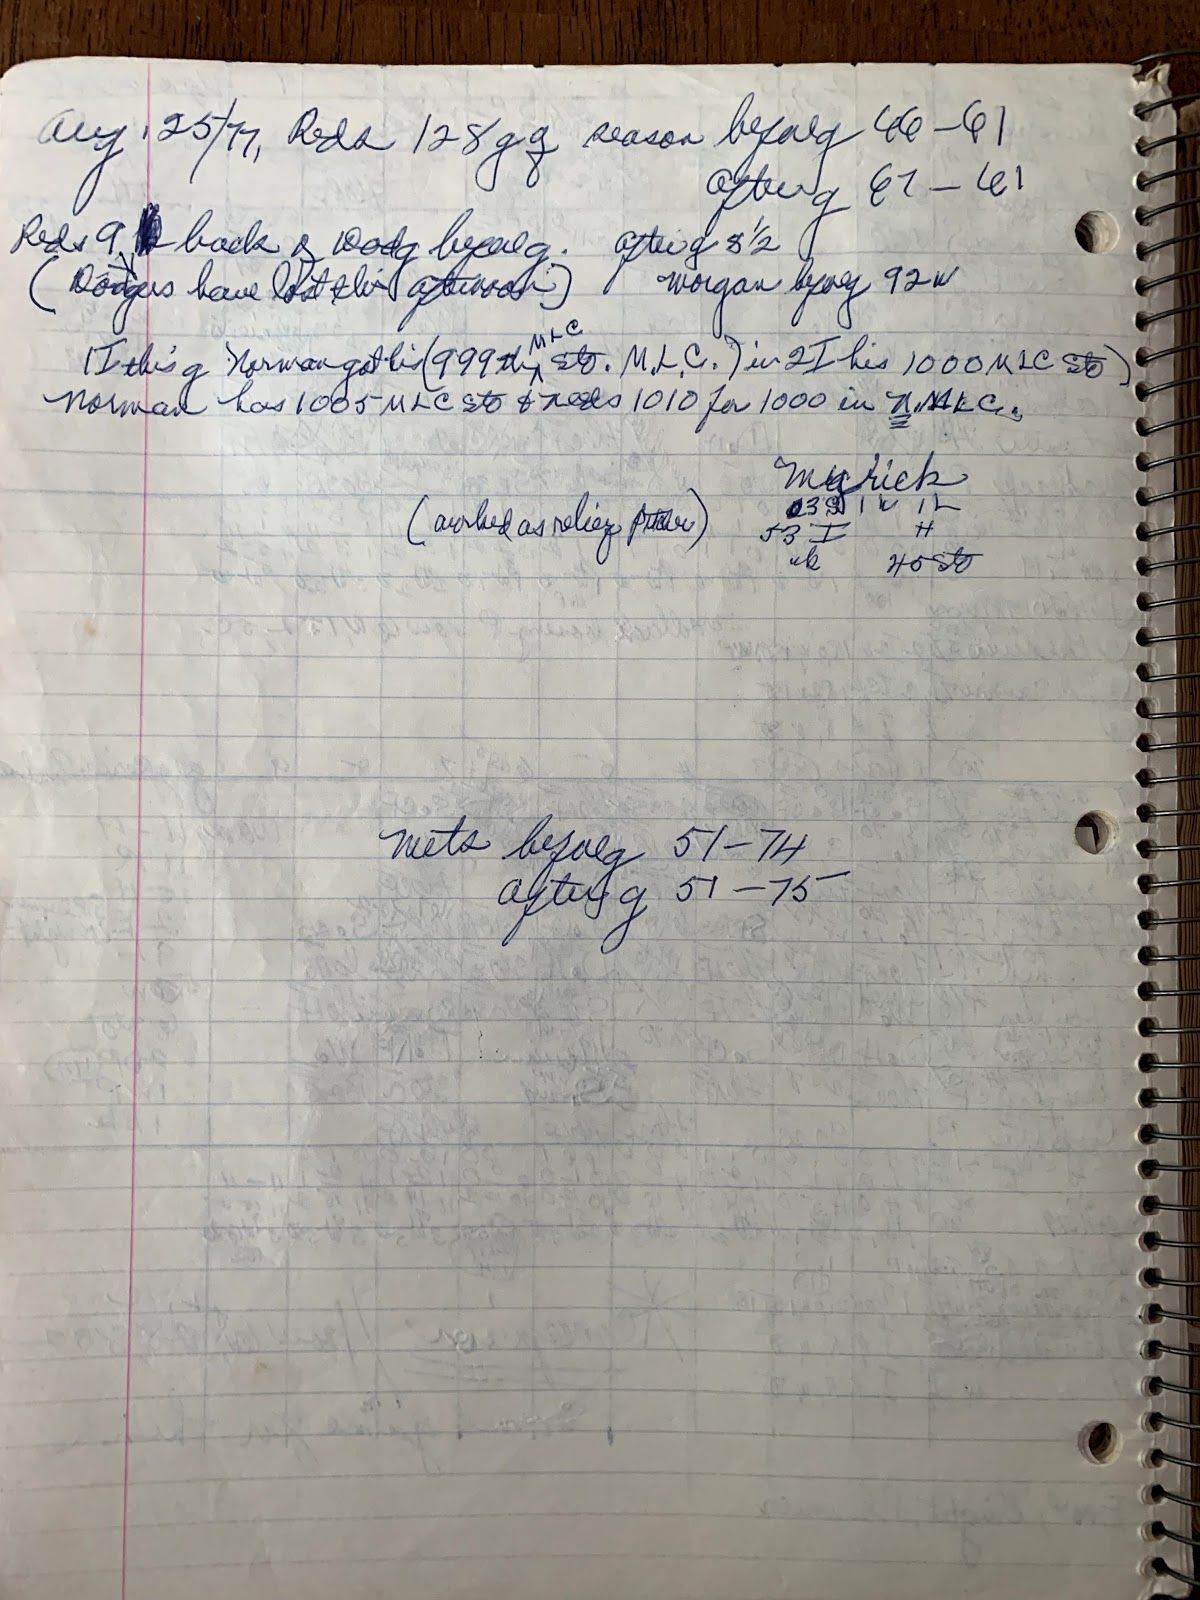 Aug. 25/77, Reds 128 g of season before g 66-61
after g 67-61
Reds 9 back of Dodg before g. after g 8 1/2
(Dodgers have lost this afternoon) Morgan before g 92 w
1 I this g Norman got his (999th MLC sto. M.L.C.) in 2 I his 1000 MLC sto)
Norman has 1005 MLC sto & needs 1010 for 1000 in N. MLC.
Myrick
(worked as relief pitcher) 1 w 1 L
53 I H
wk 45 sto
Mets before g 51-74
after g 51-75